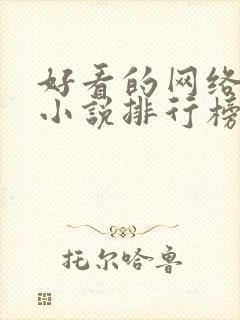 好看的网络
小说排行榜
托尔哈鲁